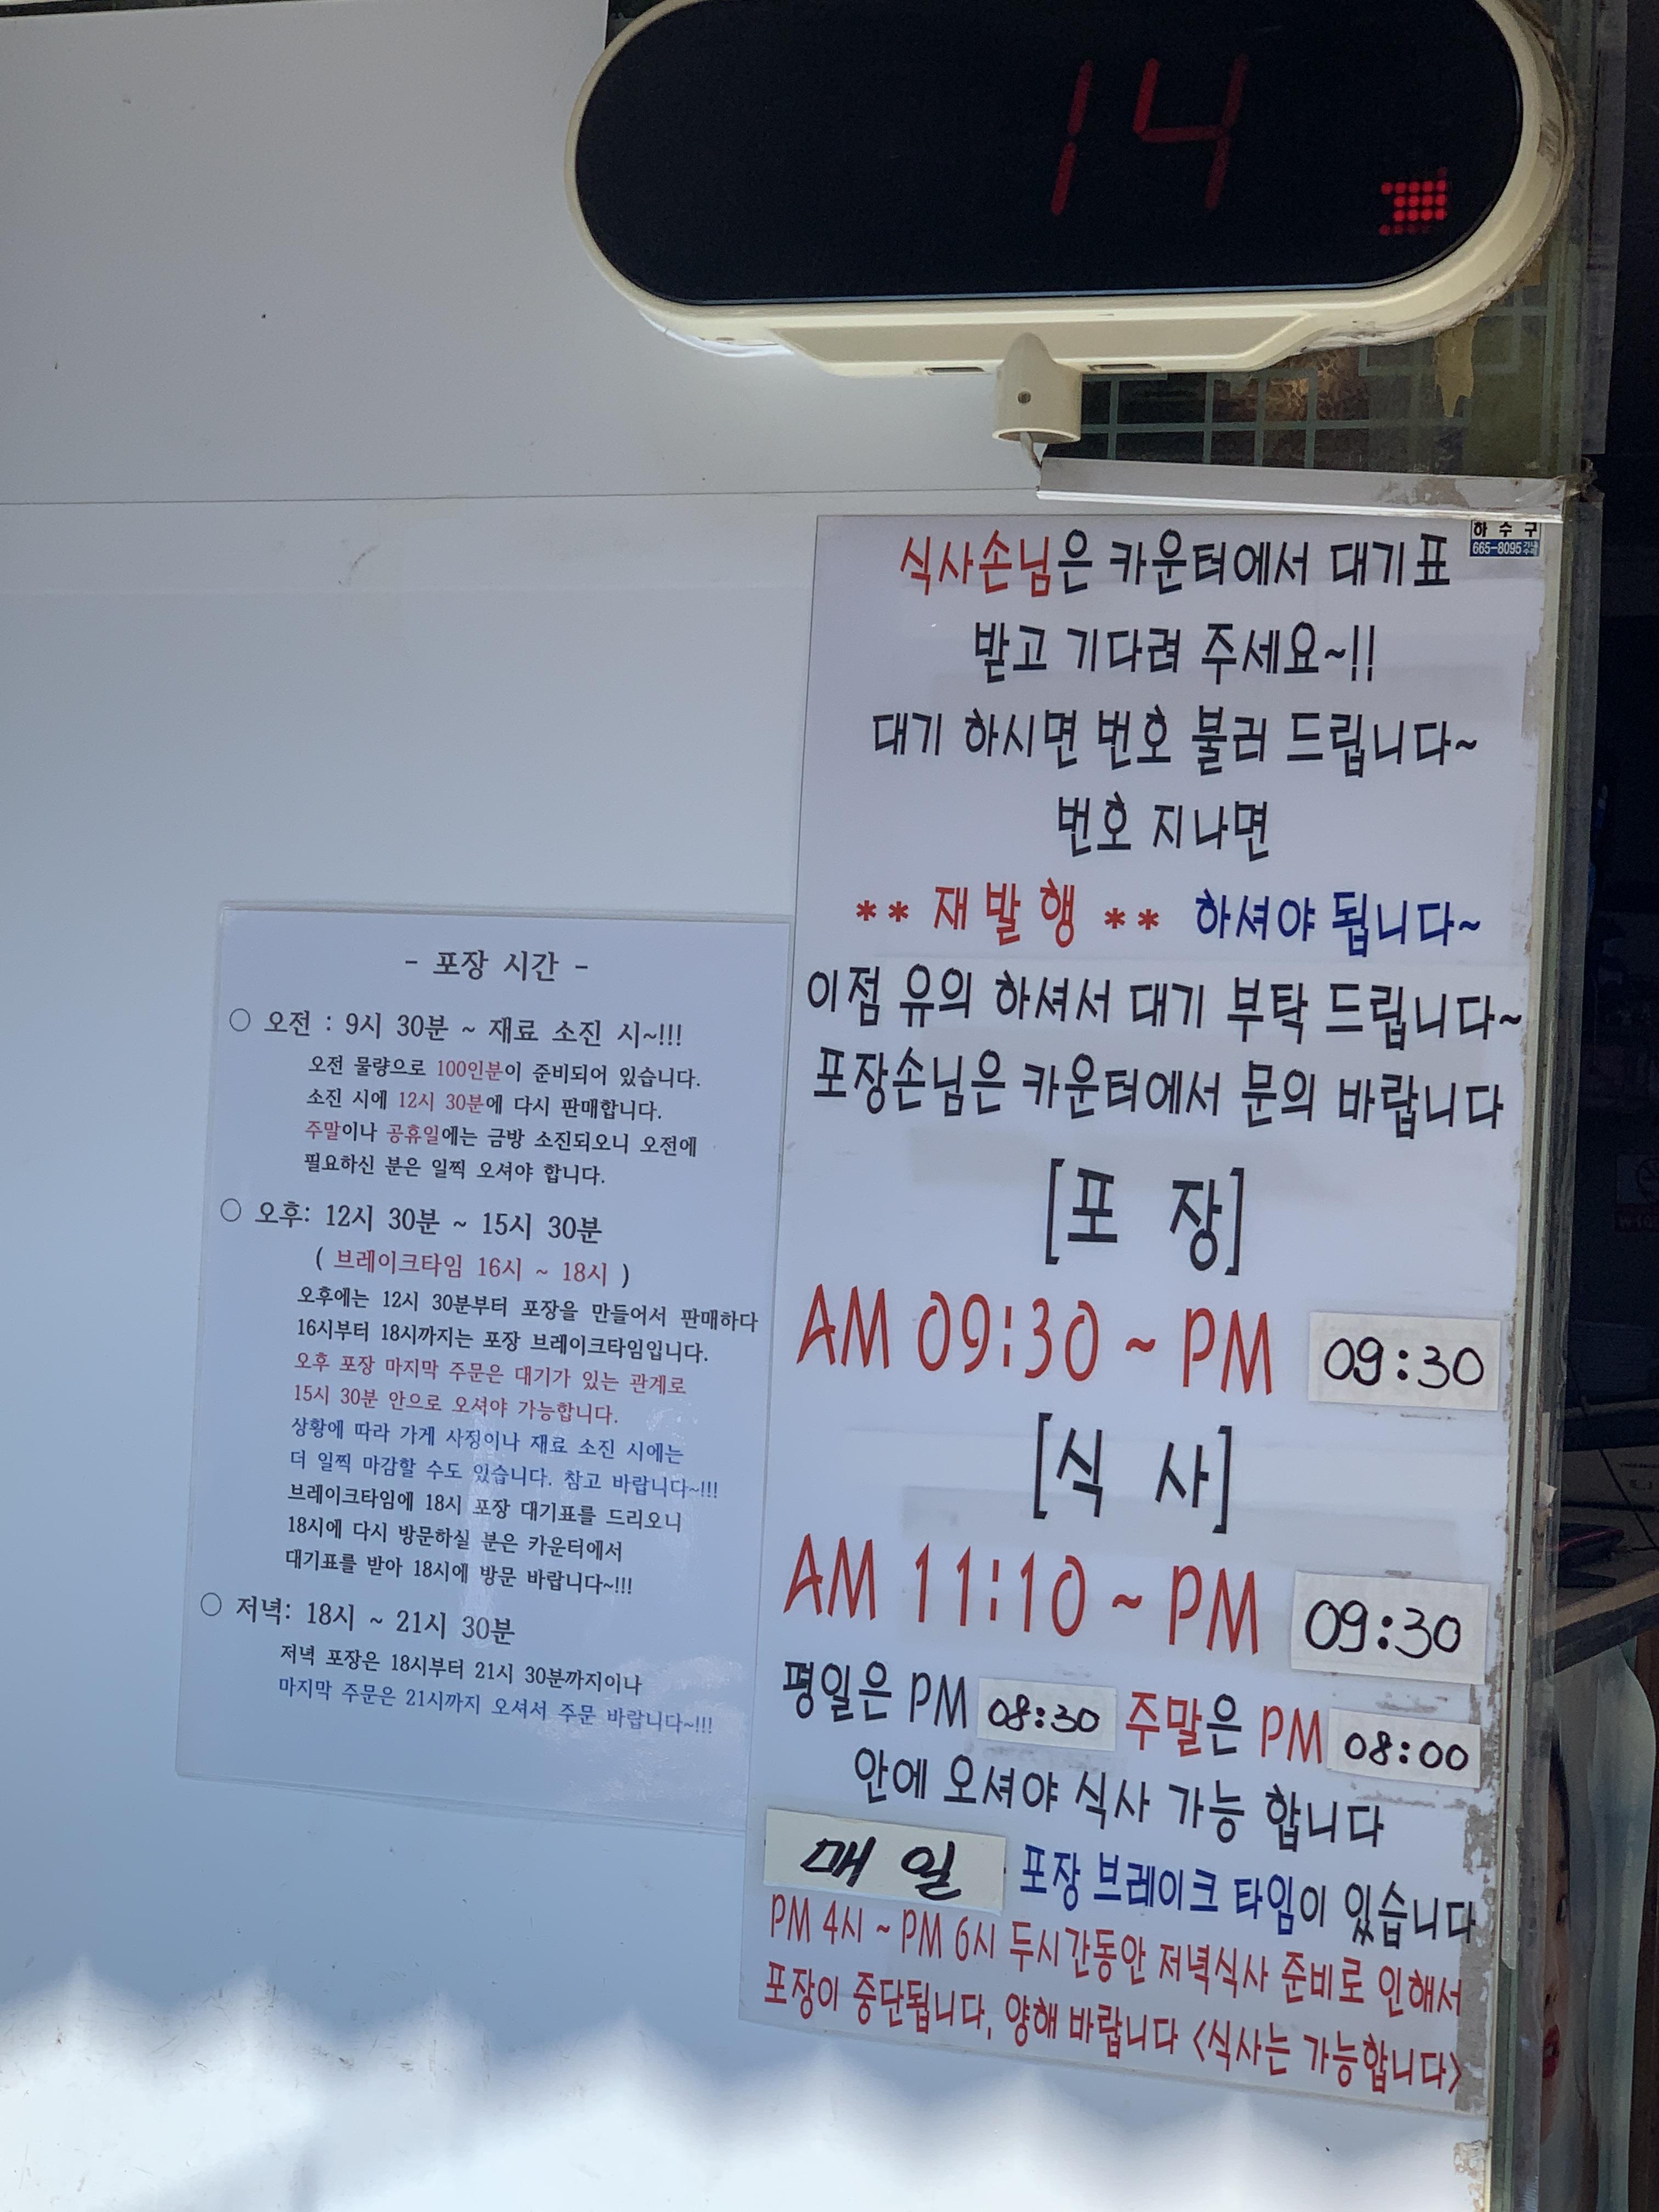 14
하 수 구
665-8095
식사손님은 카운터에서 대기표
받고 기다려 주세요~!!
대기 하시면 번호 불러 드립니다~
번호 지나면
** 재 발 행 ** 하셔야 됩니다~
이점 유의 하셔서 대기 부탁 드립니다~
포장손님은 카운터에서 문의 바랍니다
[포 장]
AM 09:30 ~ PM 09:30
[식 사]
AM 11:10 ~ PM 09:30
평일은 PM 08:30 주말은 PM 08:00
안에 오셔야 식사 가능 합니다
매 일 포장 브레이크 타임이 있습니다
PM 4시 ~ PM 6시 두시간동안 저녁식사 준비로 인해서
포장이 중단됩니다. 양해 바랍니다 <식사는 가능합니다>
- 포장 시간 -
○ 오전 : 9시 30분 ~ 재료 소진 시~!!!
오전 물량으로 100인분이 준비되어 있습니다.
소진 시에 12시 30분에 다시 판매합니다.
주말이나 공휴일에는 금방 소진되오니 오전에
필요하신 분은 일찍 오셔야 합니다.
○ 오후: 12시 30분 ~ 15시 30분
( 브레이크타임 16시 ~ 18시 )
오후에는 12시 30분부터 포장을 만들어서 판매하다
16시부터 18시까지는 포장 브레이크타임입니다.
오후 포장 마지막 주문은 대기가 있는 관계로
15시 30분 안으로 오셔야 가능합니다.
상황에 따라 가게 사정이나 재료 소진 시에는
더 일찍 마감할 수도 있습니다. 참고 바랍니다~!!!
브레이크타임에 18시 포장 대기표를 드리오니
18시에 다시 방문하실 분은 카운터에서
대기표를 받아 18시에 방문 바랍니다~!!!
○ 저녁: 18시 ~ 21시 30분
저녁 포장은 18시부터 21시 30분까지이나
마지막 주문은 21시까지 오셔서 주문 바랍니다~!!!